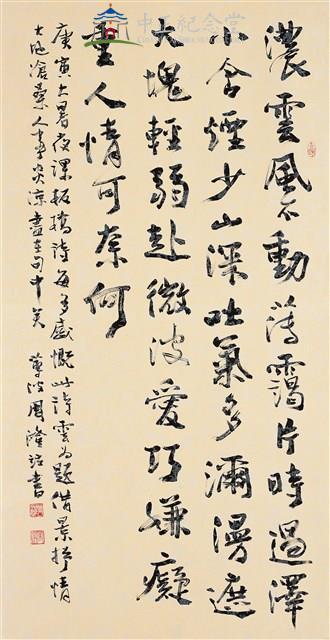 中正紀念堂
濃雲風不動薄靄片時過澤
小含煙少山深吐氣多瀰漫遮
大塊輕弱赴微波愛巧嫌癡
重人情可奈何
庚寅大暑夜課板橋詩每多感慨此詩雲為題借景抒情
大地滄桑人事炎涼盡在句中矣 周書